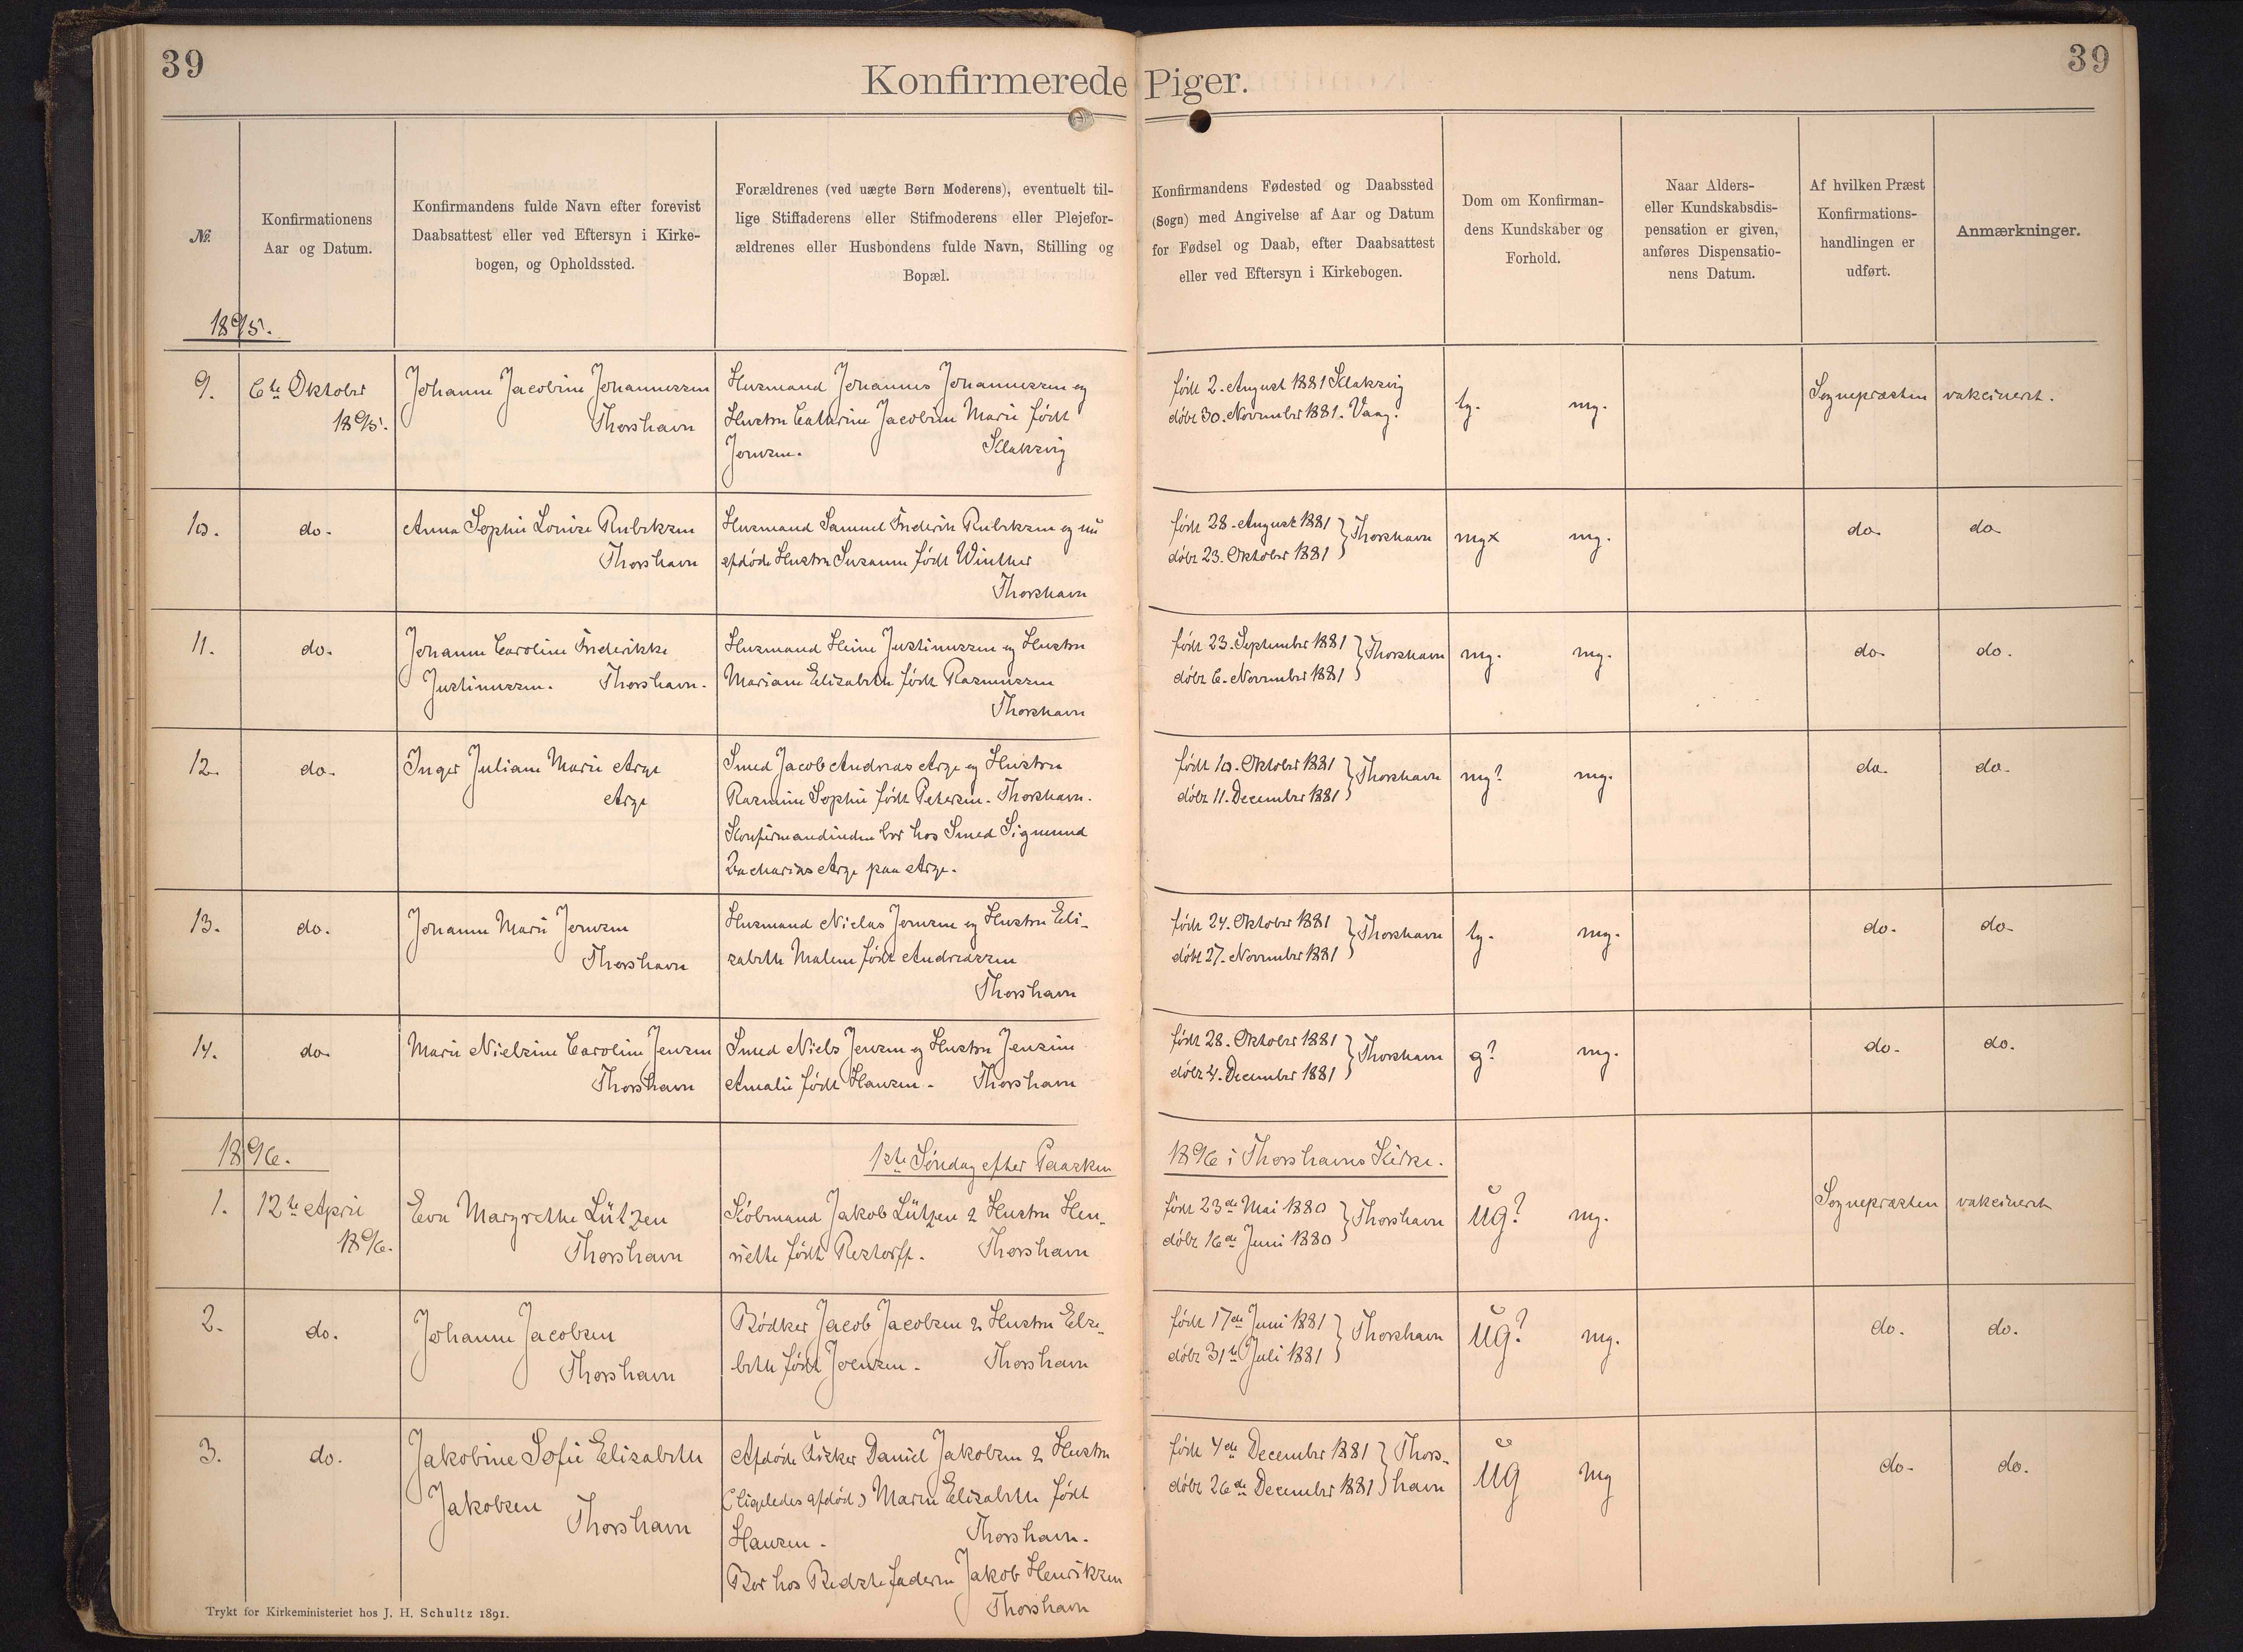 39
39
Konfirmerede Piger.
№.
Konfirmationens
Aar og Datum.
Konfirmandens fulde Navn efter forevist
Daabsattest eller ved Eftersyn i Kirke-
bogen, og Opholdssted.
Forældrenes (ved uægte Børn Moderens), eventuelt til-
lige Stiffaderens eller Stifmoderens eller Plejefor-
ældrenes eller Husbondens fulde Navn, Stilling og
Bopæl.
Konfirmandens Fødested og Daabssted
(Sogn) med Angivelse af Aar og Datum
for Fødsel og Daab, efter Daabsattest
eller ved Eftersyn i Kirkebogen.
Dom om Konfirman-
dens Kundskaber og
Forhold.
Naar Alders-
eller Kundskabsdis-
pensation er given,
anføres Dispensatio-
nens Datum.
Af hvilken Præst
Konfirmations-
handlingen er
udført.
Anmærkninger.
1895.
9.
6te Oktober
1895.
Johanne Jacobine Johannessen
Thorshavn
Husmand Johannes Johannessen og
Hustru Cathrine Jacobine Marie født
Joensen.
Klaksvig
født 2. August 1881 Klaksvig
døbt 30. November 1881. Vaag.
tg.
mg.
Sognepræsten
vakcineret.
10.
do.
Anna Sophie Louise Rubeksen
Thorshavn
Husmand Samuel Frederik Rubeksen og nu
afdøde Hustru Susanne født Winther
Thorshavn
født 28. August 1881
døbt 23. Oktober 1881
Thorshavn
mgx
mg.
do.
do
11.
do.
Johanne Caroline Frederikke
Justinussen. Thorshavn.
Husmand Heine Justinussen og Hustru
Mariane Elisabeth født Rasmussen
Thorshavn
født 23. September 1881
døbt 6. November 1881
Thorshavn
mg.
mg.
do.
do.
12.
do.
Inger Juliane Marie Arge
Arge
Smed Jacob Andreas Arge og Hustru
Rasmine Sophie født Petersen. Thorshavn.
Konfirmandinden bor hos Smed Sigmund
Zacharias Arge paa Arge.
født 10. Oktober 1881
døbt 11. December 1881
Thorshavn
mg?
mg.
do.
do.
13.
do.
Johanne Marie Joensen
Thorshavn
Husmand Niclas Joensen og Hustru Eli-
sabeth Malene født Andreassen
Thorshavn
født 24. Oktober 1881
døbt 27. November 1881
Thorshavn
tg.
mg.
do.
do
14.
do
Marie Nielsine Caroline Jensen
Thorshavn
Smed Niels Jensen og Hustru Jensine
Amalie født Hansen. Thorshavn
født 28. Oktober 1881
døbt 4. December 1881
Thorshavn
g?
mg.
do.
do.
1896.
1ste Søndag efter Paasken
1896 i Thorshavns Kirke.
1.
12te April
1896.
Eva Margrethe Lützen
Thorshavn
Kiöbmand Jakob Lützen & Hustru Hen-
riette født Restorff. Thorshavn
født 23de Mai 1880
døbt 16de Juni 1880
Thorshavn
ug?
mg.
Sognepræsten
vakcineret
2.
do.
Johanne Jacobsen
Thorshavn
Bødker Jacob Jacobsen & Hustru Else-
beth født Joensen. Thorshavn
født 17de Juni 1881
døbt 31te Juli 1881
Thorshavn
ug?
mg.
do.
do.
3.
do.
Jakobine Sofie Elisabeth
Jakobsen
Thorshavn
Afdøde Fisker Daniel Jakobsen & Hustru
(ligeledes afdød) Maren Elisabeth født
Hansen. Thorshavn.
Bor hos Bedstefaderen Jakob Henriksen
Thorshavn
født 4de December 1881
døbt 26de December 1881
Thors-
havn
ug
mg
do.
do.
Trykt for Kirkeministeriet hos J. H. Schultz 1891.